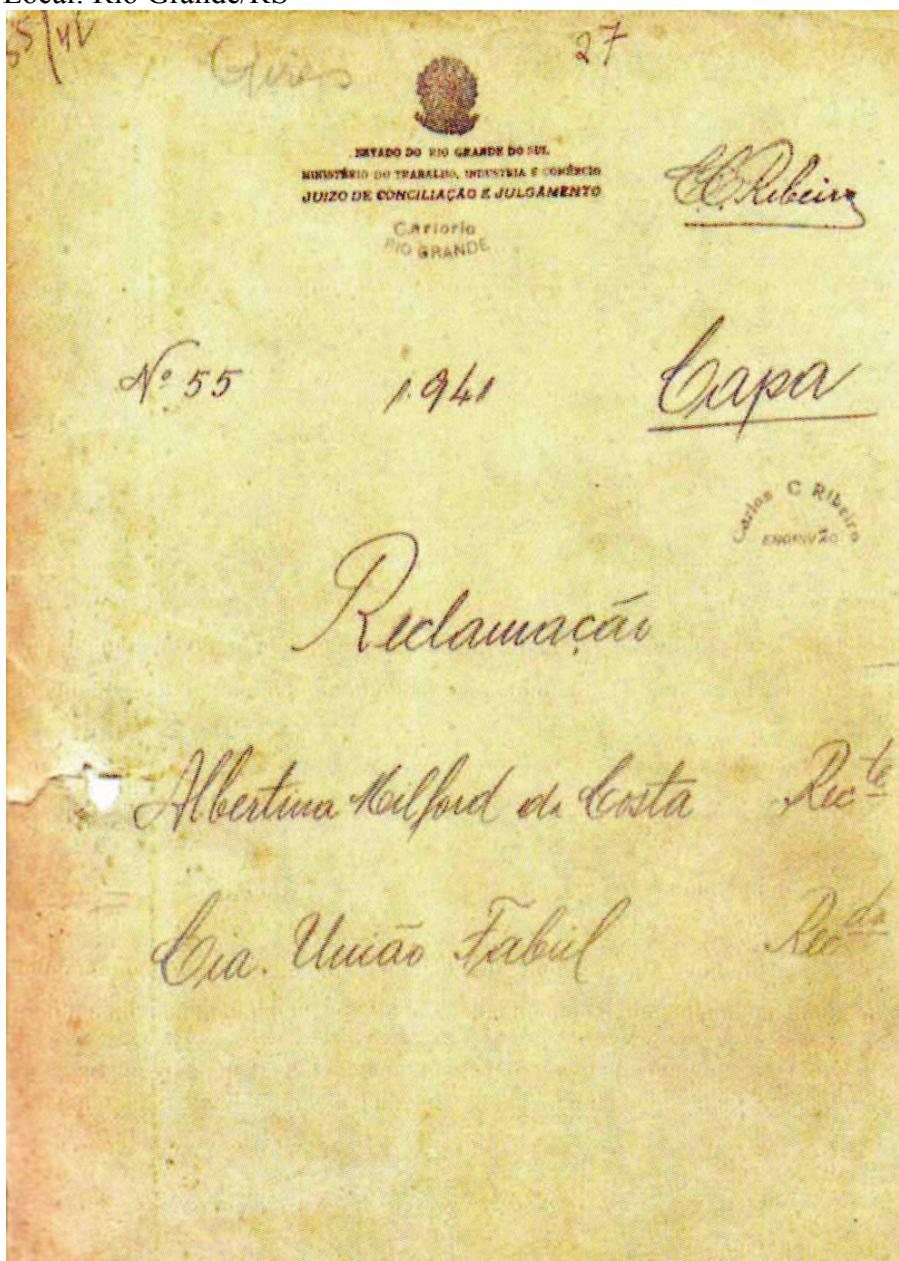 Local: Rio Grande/RS
55/41
27
ESTADO DO RIO GRANDE DO SUL
MINISTÉRIO DO TRABALHO, INDUSTRIA E COMÉRCIO
JUIZO DE CONCILIAÇÃO E JULGAMENTO
Cartorio
RIO GRANDE
C.C. Ribeiro
Nº 55 1.941 Capa
Carlos C Ribeiro
Reclamação
Albertina Milford da Costa Recte
Cia. União Fabril Recda